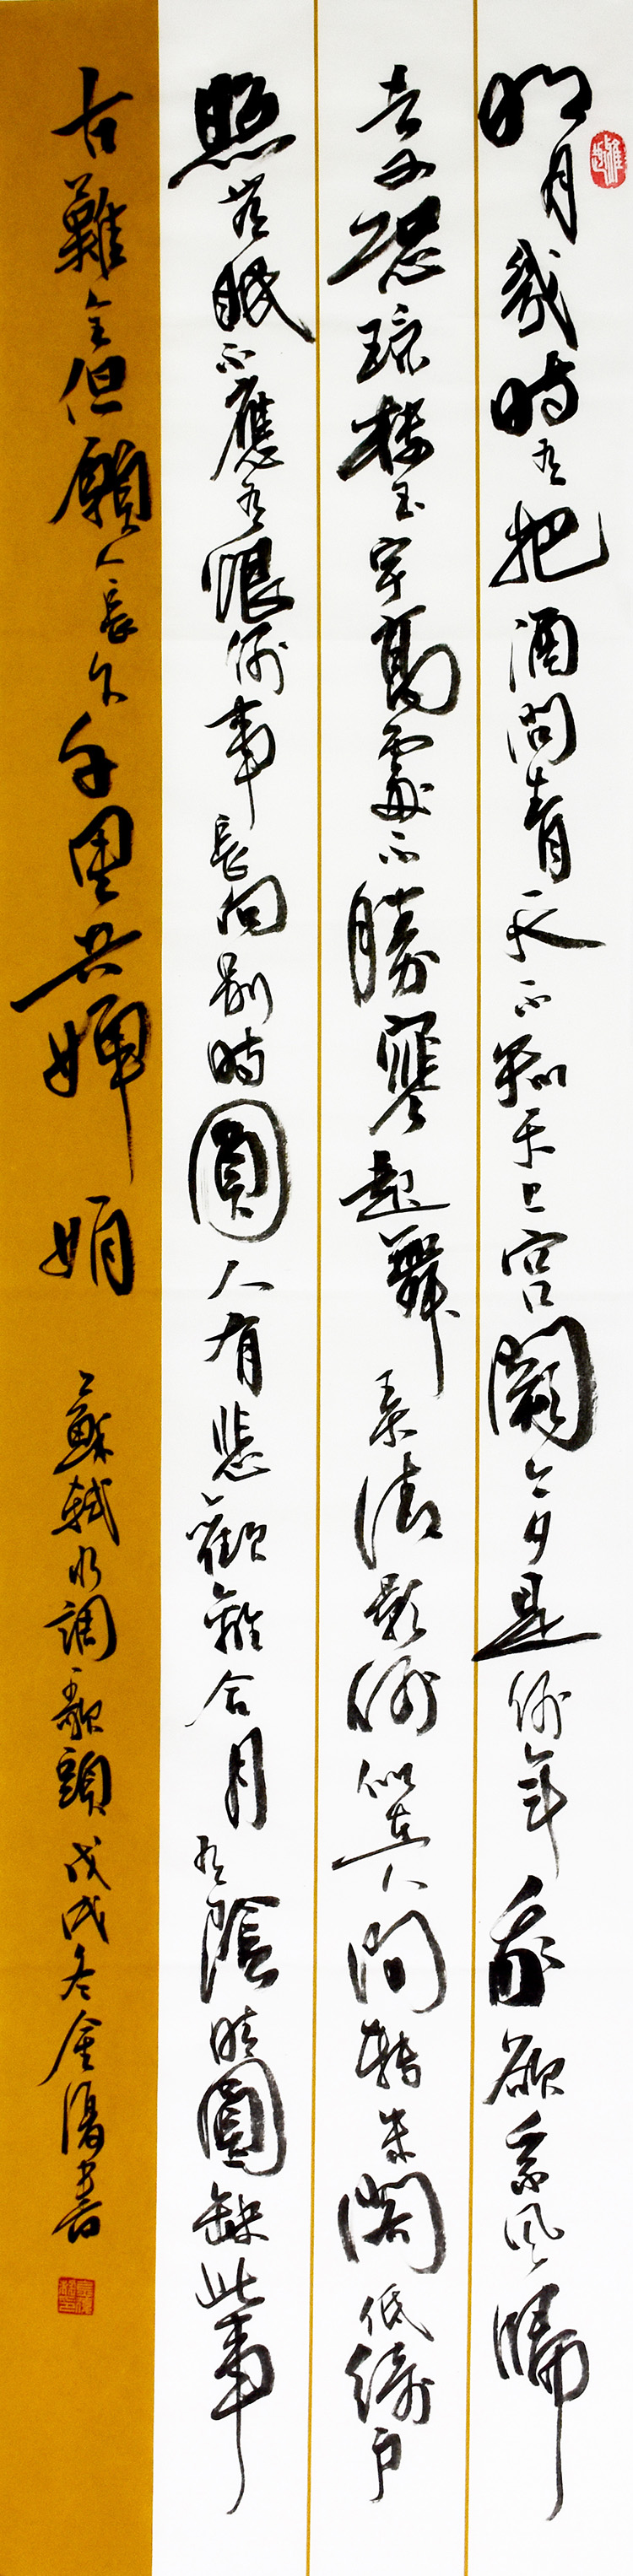 明月幾時有把酒問青天不知天上宮闕今夕是何年我欲乘風歸
去又恐瓊樓玉宇高處不勝寒起舞弄清影何似在人間轉朱閣低綺戶
照無眠不應有恨何事長向別時圓人有悲歡離合月有陰晴圓缺此事
古難全但願人長久千里共嬋娟 蘇軾水調歌頭戊戌冬金書